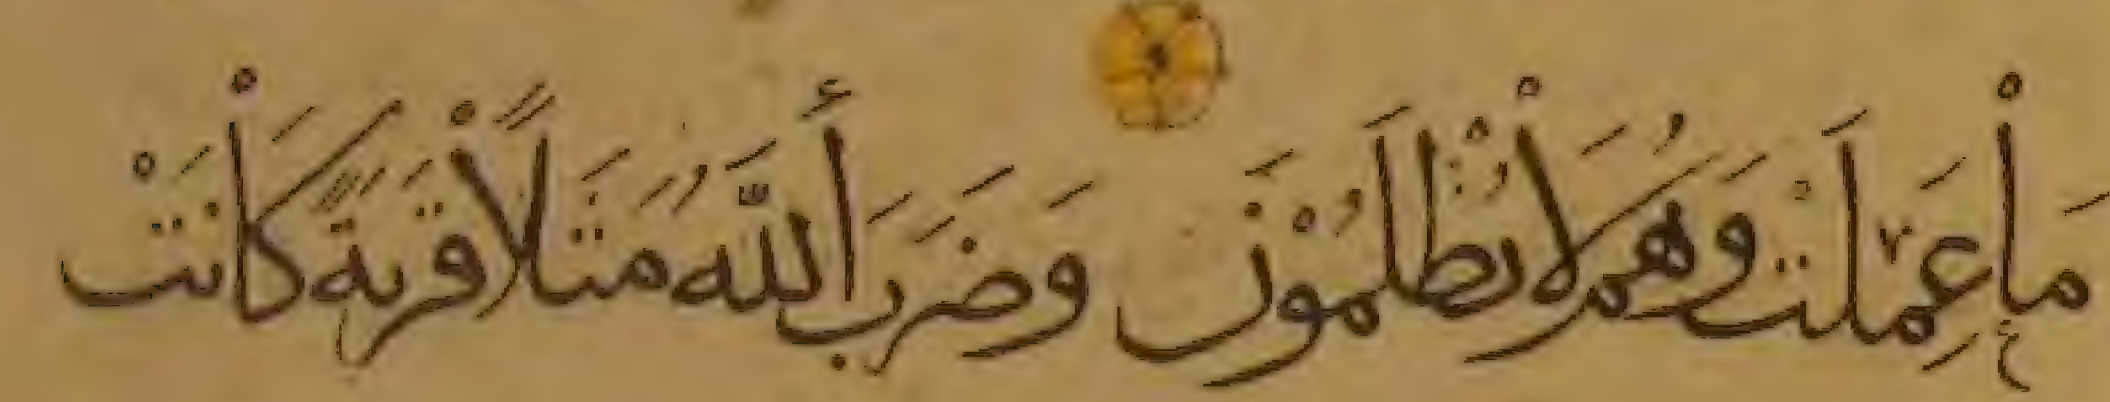 مَاْ عَمِلَتْ وَهُمْ لَاْ يُظْلَمُوْنَ وَضَرَبَ أَللَّهُ مَثَلًاْ قَرْيَةً كَاْنَتْ